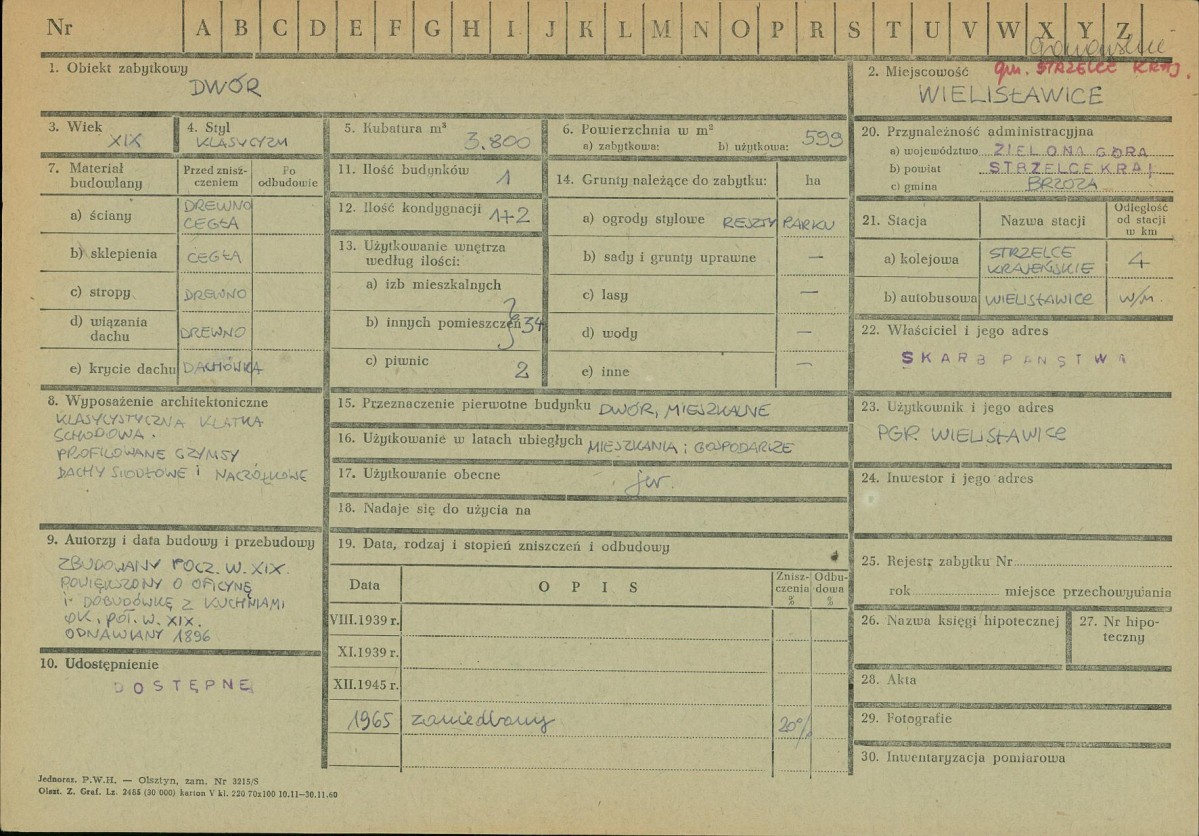 Nr A B C D E F G H I J K L M N O P R S T U V W X Y Z
gm. STRZELCE KRAJ.
1. Obiekt zabytkowy
DWÓR
2. Miejscowość
WIELISŁAWICE
3. Wiek
XIX
4. Styl
KLASYCYZM
5. Kubatura m³
3.800
6. Powierzchnia w m²
a) zabytkowa: b) użytkowa: 599
7. Materiał budowlany
Przed zniszczeniem
Po odbudowie
a) ściany DREWNO CEGŁA
b) sklepienia CEGŁA
c) stropy DREWNO
d) wiązania dachu DREWNO
e) krycie dachu DACHÓWKA
8. Wyposażenie architektoniczne
KLASYCYSTYCZNA KLATKA
SCHODOWA.
PROFILOWANE GZYMSY
DACHY SIODŁOWE i NACZÓŁKOWE
9. Autorzy i data budowy i przebudowy
ZBUDOWANY POCZ. W. XIX.
POWIĘKSZONY O OFICYNĘ
i DOBUDÓWKĘ Z KUCHNIAMI
OK. POŁ. W. XIX.
ODNAWIANY 1896
10. Udostępnienie
DOSTĘPNE
11. Ilość budynków
1
12. Ilość kondygnacji 1+2
13. Użytkowanie wnętrza
według ilości:
a) izb mieszkalnych
b) innych pomieszczeń 34
c) piwnic 2
14. Grunty należące do zabytku: ha
a) ogrody stylowe RESZTY PARKU
b) sady i grunty uprawne —
c) lasy —
d) wody —
e) inne —
15. Przeznaczenie pierwotne budynku DWÓR, MIESZKALNE
16. Użytkowanie w latach ubiegłych MIESZKANIA i GOSPODARZE
17. Użytkowanie obecne jw.
18. Nadaje się do użycia na
19. Data, rodzaj i stopień zniszczeń i odbudowy
Data OPIS Zniszczenia % Odbudowa %
VIII.1939 r.
XI.1939 r.
XII.1945 r.
1965 zaniedbany 20%
20. Przynależność administracyjna
a) województwo ZIELONA GÓRA
b) powiat STRZELCE KRAJ
c) gmina BRZOZA
21. Stacja Nazwa stacji Odległość od stacji w km
a) kolejowa STRZELCE KRAJEŃSKIE 4
b) autobusowa WIELISŁAWICE w/m.
22. Właściciel i jego adres
SKARB PAŃSTWA
23. Użytkownik i jego adres
PGR WIELISŁAWICE
24. Inwestor i jego adres
25. Rejestr zabytku Nr
rok miejsce przechowywania
26. Nazwa księgi hipotecznej
27. Nr hipoteczny
28. Akta
29. Fotografie
30. Inwentaryzacja pomiarowa
Jednoraz. P.W.H. — Olsztyn, zam. Nr 3215/S
Olszt. Z. Graf. Lz. 2485 (30 000) karton V kl. 220 70x100 10.11—30.11.60